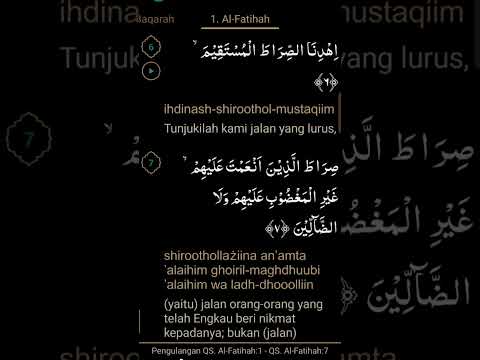 Baqarah
1. Al-Fatihah
6
اِهْدِنَا الصِّرَاطَ الْمُسْتَقِيْمَ ۙ
﴿٦﴾
ihdinash-shiroothol-mustaqiim
Tunjukilah kami jalan yang lurus,
7
صِرَاطَ الَّذِيْنَ اَنْعَمْتَ عَلَيْهِمْ ۙ
غَيْرِ الْمَغْضُوْبِ عَلَيْهِمْ وَلَا
الضَّآلِّيْنَ ﴿٧﴾
shiroothollażiina an'amta
'alaihim ghoiril-maghdhuubi
'alaihim wa ladh-dhooolliin
(yaitu) jalan orang-orang yang
telah Engkau beri nikmat
kepadanya; bukan (jalan)
Pengulangan QS. Al-Fatihah:1 - QS. Al-Fatihah:7
7
صِرَاطَ الَّذِ
غَيْرِ الْمَغْضُ
الضَّآلِّيْنَ